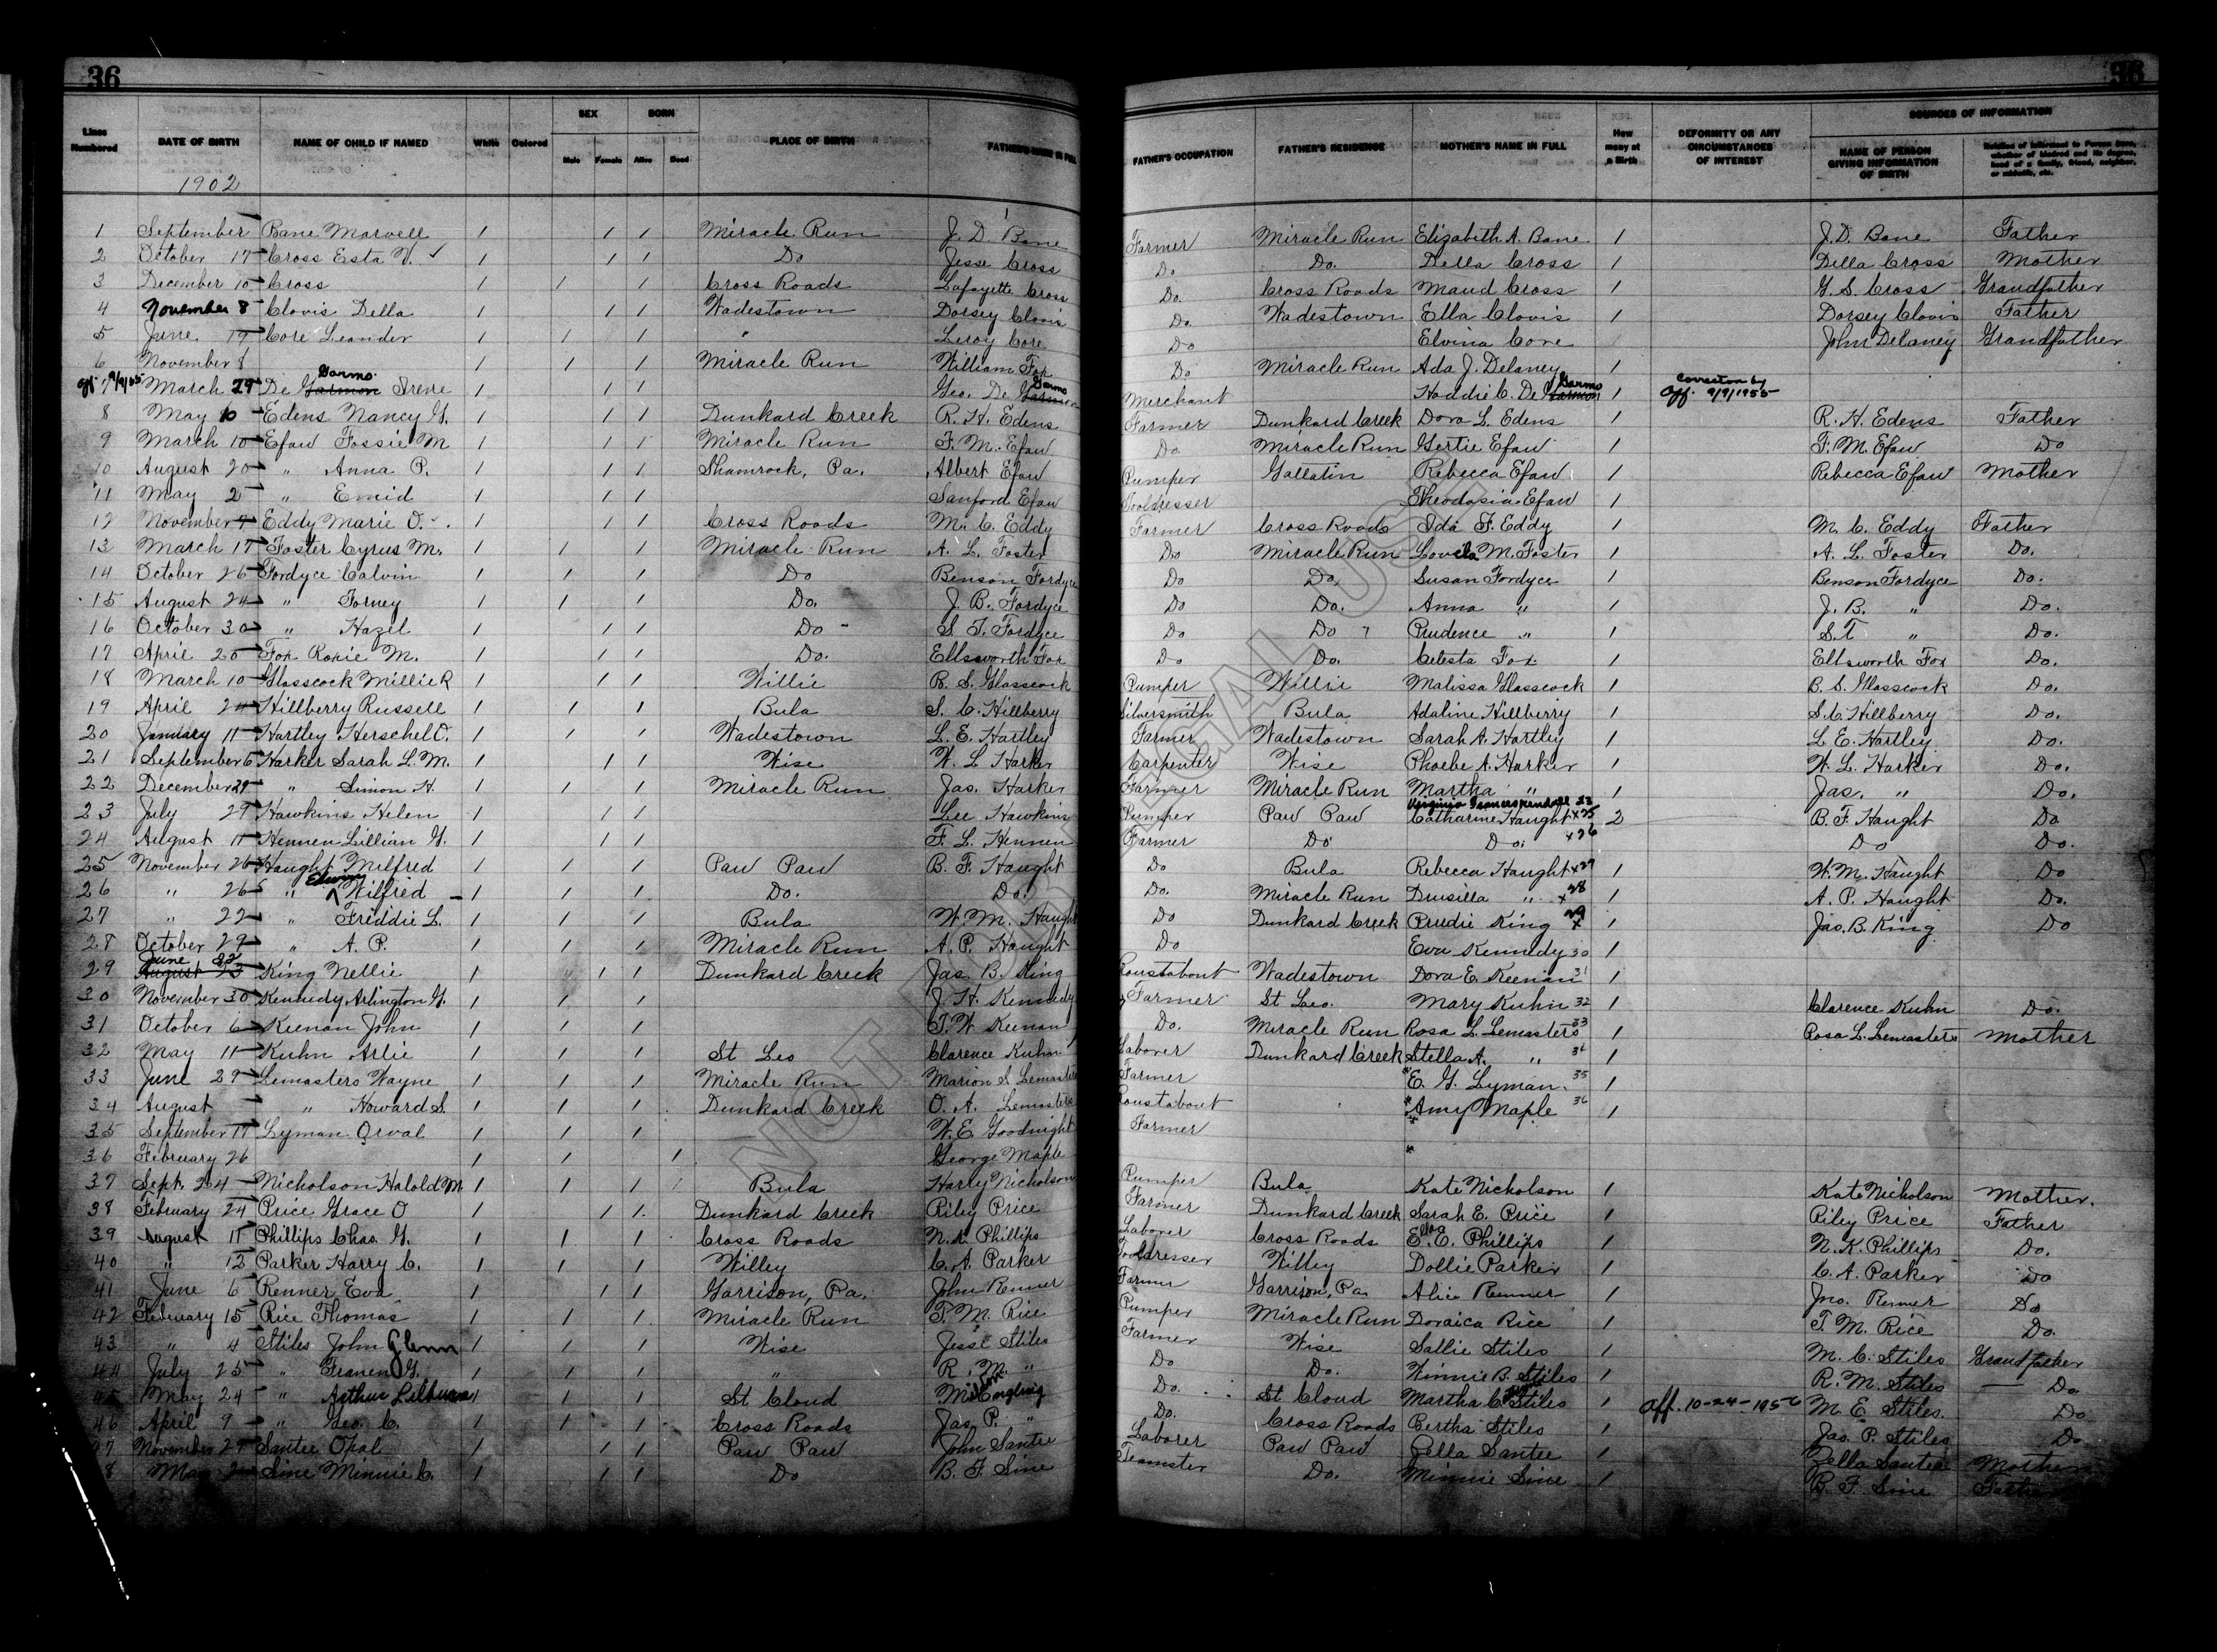 36 36
Lines Numbered DATE OF BIRTH NAME OF CHILD IF NAMED White Colored SEX Male Female BORN Alive Dead PLACE OF BIRTH FATHER'S NAME IN FULL FATHER'S OCCUPATION FATHER'S RESIDENCE MOTHER'S NAME IN FULL How many at a Birth DEFORMITY OR ANY CIRCUMSTANCES OF INTEREST SOURCES OF INFORMATION NAME OF PERSON GIVING INFORMATION OF BIRTH Relation of Informant to Person Born, whether of kindred and its degree, head of a family, friend, neighbor, or midwife, etc.
1902
1 September Bane Marvell / / / Miracle Run J. D. Bane Farmer Miracle Run Elizabeth A. Bane 1 J. D. Bane Father
2 October 17 Cross Esta V. ✓ / / / Do Jesse Cross Do Do. Della Cross 1 Della Cross Mother
3 December 10 Cross / / / Cross Roads Lafayette Cross Do. Cross Roads Maud Cross 1 G. S. Cross Grandfather
4 November 8 Clovis Della / / / Wadestown Dorsey Clovis Do. Wadestown Ella Clovis 1 Dorsey Clovis Father
5 June 19 Core Leander / / / " Leroy Core Do Elvina Core John Delaney Grandfather
6 November 8 / / / Miracle Run William Fox Do Miracle Run Ada J. Delaney 1
aff. 9/9/55 7 March 29 De Garmo Irene / / / Geo. De Garmo Merchant Haddie C. De Garmo 1 Correction by Aff. 9/9/1955
8 May 10 Edens Nancy G. / / / Dunkard Creek R. H. Edens Farmer Dunkard Creek Dora L. Edens 1 R. H. Edens Father
9 March 10 Efaw Fossie M / / / Miracle Run F. M. Efaw Do. Miracle Run Gertie Efaw 1 F. M. Efaw Do
10 August 20 " Anna P. / / / Shamrock, Pa. Albert Efaw Pumper Gallatin Rebecca Efaw 1 Rebecca Efaw Mother
11 May 2 " Emid / / / Sanford Efaw Tooldresser Theodosia Efaw 1
12 November 7 Eddy Marie O. / / / Cross Roads M. C. Eddy Farmer Cross Roads Ida F. Eddy 1 M. C. Eddy Father
13 March 17 Foster Cyrus M. / / / Miracle Run A. L. Foster Do Miracle Run Lovela M. Foster 1 A. L. Foster Do.
14 October 26 Fordyce Calvin / / / Do Benson Fordyce Do Do. Susan Fordyce 1 Benson Fordyce Do.
15 August 24 " Forney / / / Do. J. B. Fordyce Do Do. Anna " 1 J. B. " Do.
16 October 30 " Hazel / / / Do S. T. Fordyce Do Do Prudence " 1 S. T. " Do.
17 April 20 Fox Roxie M. / / / Do. Ellsworth Fox Do Do. Celesta Fox 1 Ellsworth Fox Do.
18 March 10 Glasscock Millie R / / / Willie B. S. Glasscock Pumper Willie Malissa Glasscock 1 B. S. Glasscock Do.
19 April 24 Hillberry Russell / / / Bula S. C. Hillberry Silversmith Bula Adaline Hillberry 1 S. C. Hillberry Do.
20 January 11 Hartley Herschel O. / / / Wadestown L. E. Hartley Farmer Wadestown Sarah A. Hartley 1 L. E. Hartley Do.
21 September 6 Harker Sarah L. M. / / / Wise W. L. Harker Carpenter Wise Phoebe A. Harker 1 W. L. Harker Do.
22 December 29 " Simon H. / / / Miracle Run Jas. Harker Farmer Miracle Run Martha " 1 Jas. " Do.
23 July 29 Hawkins Helen / / / Lee Hawkins Pumper Paw Paw Virginia Frances Kendall 23 Catharine Haught x25 2 B. F. Haught Do
24 August 11 Hennen Lillian G. / / / F. L. Hennen Farmer Do Do. x26 Do Do.
25 November 26 Haught Milfred / / / Paw Paw B. F. Haught Do Bula Rebecca Haught x27 1 W. M. Haught Do
26 " 26 " Edwin Wilfred / / / Do. Do. Do. Miracle Run Drusilla " x 28 1 A. P. Haught Do.
27 " 22 " Friddie L. / / / Bula W. M. Haught Do Dunkard Creek Prudie King x 29 1 Jas. B. King Do
28 October 29 " A. P. / / / Miracle Run A. P. Haught Do Eva Kennedy 30 1
29 June 23 King Nellie / / / Dunkard Creek Jas. B. King Roustabout Wadestown Dora E. Keenan 31 1
30 November 30 Kennedy Arlington G. / / / J. H. Kennedy Farmer St Leo. Mary Kuhn 32 1 Clarence Kuhn Do.
31 October 6 Keenan John / / / T. W. Keenan Do. Miracle Run Rosa L. Lemasters 33 1 Rosa L. Lemasters Mother
32 May 11 Kuhn Arlie / / / St Leo Clarence Kuhn Laborer Dunkard Creek Stella A. " 34 1
33 June 29 Lemasters Wayne / / / Miracle Run Marion S Lemasters Farmer * E. G. Lyman. 35 1
34 August " Howard S. / / / Dunkard Creek O. A. Lemasters Roustabout * Amy Maple 36 1
35 September 17 Lyman Orval / / / W. E. Goodnight Farmer
36 February 26 / / / George Maple *
37 Sept. 24 Nicholson Halold M / / / Bula Harly Nicholson Pumper Bula Kate Nicholson 1 Kate Nicholson Mother.
38 February 24 Price Grace O / / / Dunkard Creek Riley Price Farmer Dunkard Creek Sarah E. Price 1 Riley Price Father
39 August 11 Phillips Chas. G. / / / Cross Roads N. K. Phillips Laborer Cross Roads Ella E. Phillips 1 N. K. Phillips Do.
40 " 12 Parker Harry C. / / / Willey C. A. Parker Tooldresser Willey Dollie Parker 1 C. A. Parker Do
41 June 6 Renner Eva / / / Garrison, Pa. John Renner Farmer Garrison, Pa. Alice Renner 1 Jno. Renner Do
42 February 15 Rice Thomas / / / Miracle Run T. M. Rice Pumper Miracle Run Doraica Rice 1 T. M. Rice Do.
43 " 4 Stiles John Glenn / / / Wise Jesse Stiles Farmer Wise Sallie Stiles 1 M. C. Stiles Grandfather
44 July 25 " Franen G. / / / " R. M. " Do Do. Winnie B. Stiles 1 R. M. Stiles Do
45 May 24 " Arthur Lilburn / / / St Cloud Do. St Cloud Martha C. Stiles 1 Aff. 10-24-1956 M. E. Stiles. Do
46 April 9 " Geo. C. / / / Cross Roads Jas. P. " Do. Cross Roads Bertha Stiles 1 Jas. P. Stiles Do
47 November 27 Santee Opal / / / Paw Paw John Santee Laborer Paw Paw Zella Santee 1 Zella Santee Mother
8 May 2 Sine Minnie C. / / / Do B. F. Sine Teamster Do. Minnie Sine 1 B. F. Sine Father